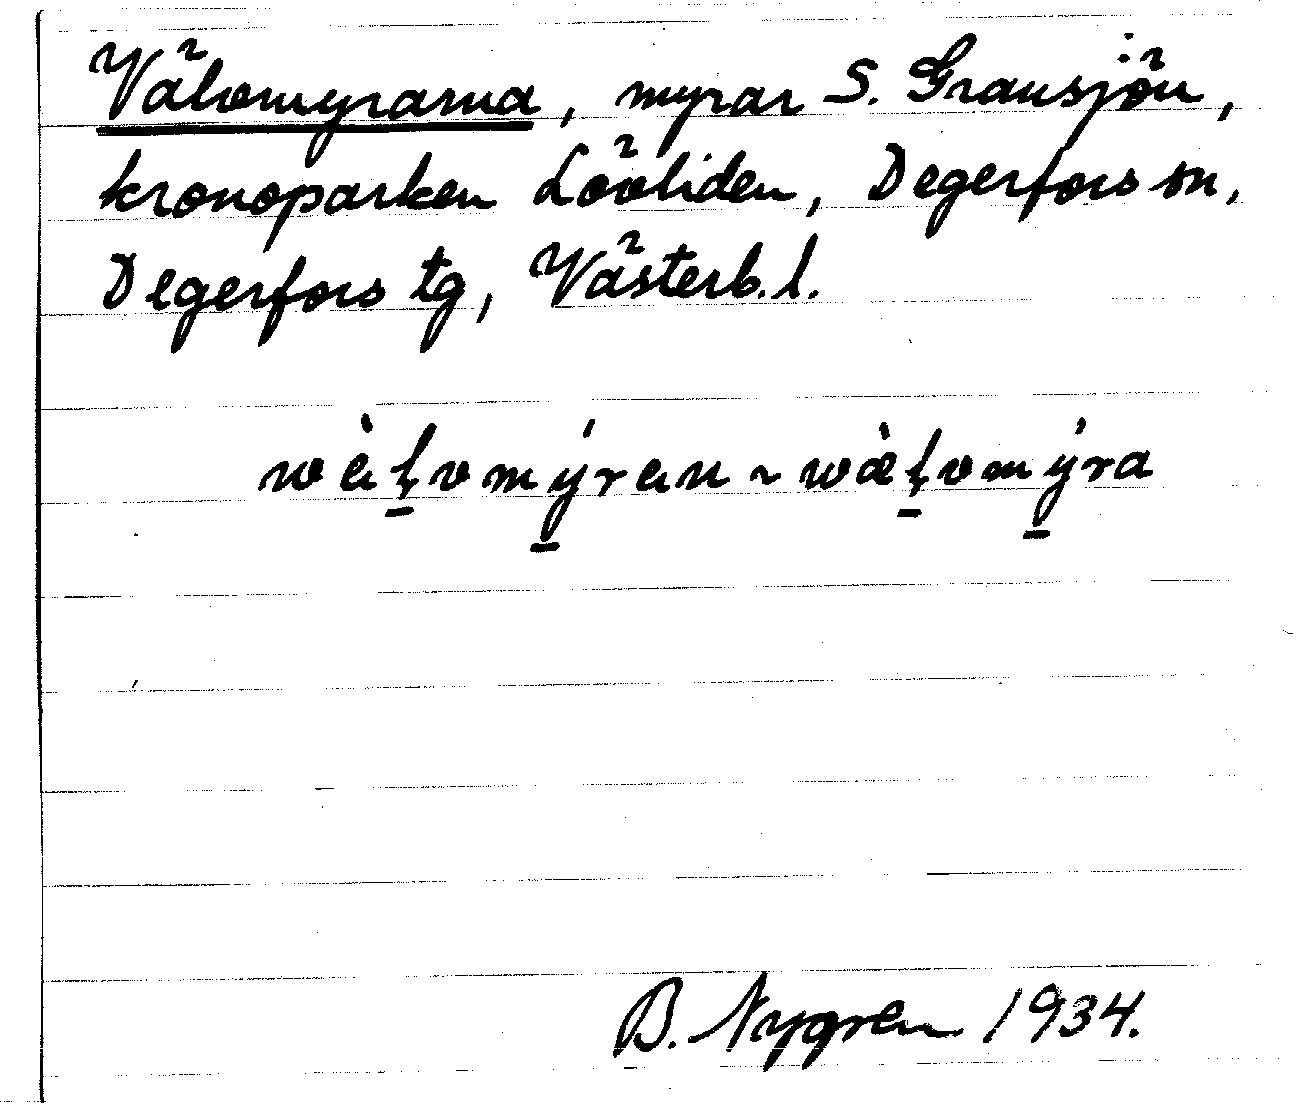 Välvomyrarna, myrar S. Gransjön,
kronoparken Lövliden, Degerfors sn,
Degerfors tg, Västerb. l.
wèḷvomýren ~ wæ̀ḷvomýra
B. Nygren 1934.